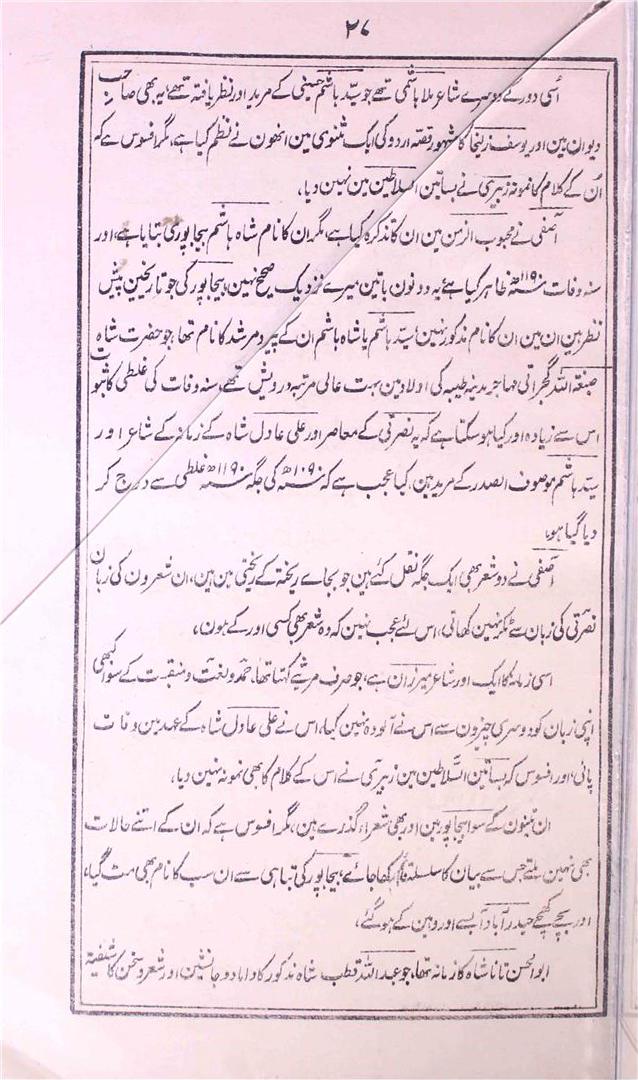 ۲۸
اُسی دور کے دوسرے شاعر ملا ہاشمی تھے جو سیّد ہاشم حسینی کے مرید اور نظر یافتہ تھے، یہ بھی صاحب
دیوان ہین اور یوسف زلیخا کا مشہور قصہ اردو کی ایک مثنوی مین انھون نے نظم کیا ہے، مگر افسوس ہے کہ
اُن کے کلام کا نمونہ زبیری نے بساتین السلاطین مین نہین دیا،
آصفی نے محبوب الزمن مین ان کا تذکرہ کیا ہے، مگر ان کا نام شاہ ہاشم بیجاپوری بتایا ہے، اور
سنہ وفات ۱۱۹۰ھ ظاہر کیا ہے یہ دونون باتین میرے نزدیک صحیح نہین، بیجاپور کی جو تاریخین پیش
نظر ہین ان مین ان کا نام مذکور نہین، سیّد ہاشم یا شاہ ہاشم ان کے پیر و مرشد کا نام تھا، جو حضرت شاہ
صبغۃ اللہ گجراتی مہاجر مدینہ طیبہ کی اولاد مین بہت عالی مرتبہ درویش تھے، سنہ وفات کی غلطی کا ثبوت
اس سے زیادہ اور کیا ہو سکتا ہے کہ یہ نصرتی کے معاصر اور علی عادل شاہ کے زمانہ کے شاعر اور
سیّد ہاشم موصوف الصدر کے مرید ہین، کیا عجب ہے کہ ۱۰۹۰ھ کی جگہ ۱۱۹۰ھ غلطی سے درج کر
دیا گیا ہو،
آصفی نے دو شعر بھی ایک جگہ نقل کئے ہین جو بجاے ریختہ کے ریختی مین ہین، ان شعرون کی زبان
نصرتی کی زبان سے ٹکر نہین کھاتی، اس لئے عجب نہین کہ وہ شعر بھی کسی اور کے ہون،
اسی زمانہ کا ایک اور شاعر میرزان ہے، جو صرف مرثیے کہتا تھا، حمد و نعت و منقبت کے سوا کبھی
اپنی زبان کو دوسری چیزون سے اس نے آلودہ نہین کیا، اس نے علی عادل شاہ کے عہد مین وفات
پائی، اور افسوس کہ بساتین السّلاطین مین زبیری نے اس کے کلام کا بھی نمونہ نہین دیا،
ان تینون کے سوا بیجاپور مین اور بھی شعراء گذرے ہین، مگر افسوس ہے کہ ان کے اتنے حالات
بھی نہین ملتے جس سے بیان کا سلسلہ قائم رکھا جائے، بیجاپور کی تباہی سے ان سب کا نام بھی مٹ گیا،
اور بچے کھچے حیدرآباد آبسے اور وہین کے ہو گئے،
ابو الحسن تانا شاہ کا زمانہ تھا، جو عبداللہ قطب شاہ مذکور کا داماد و جانشین اور شعر و سخن کا شیفتہ